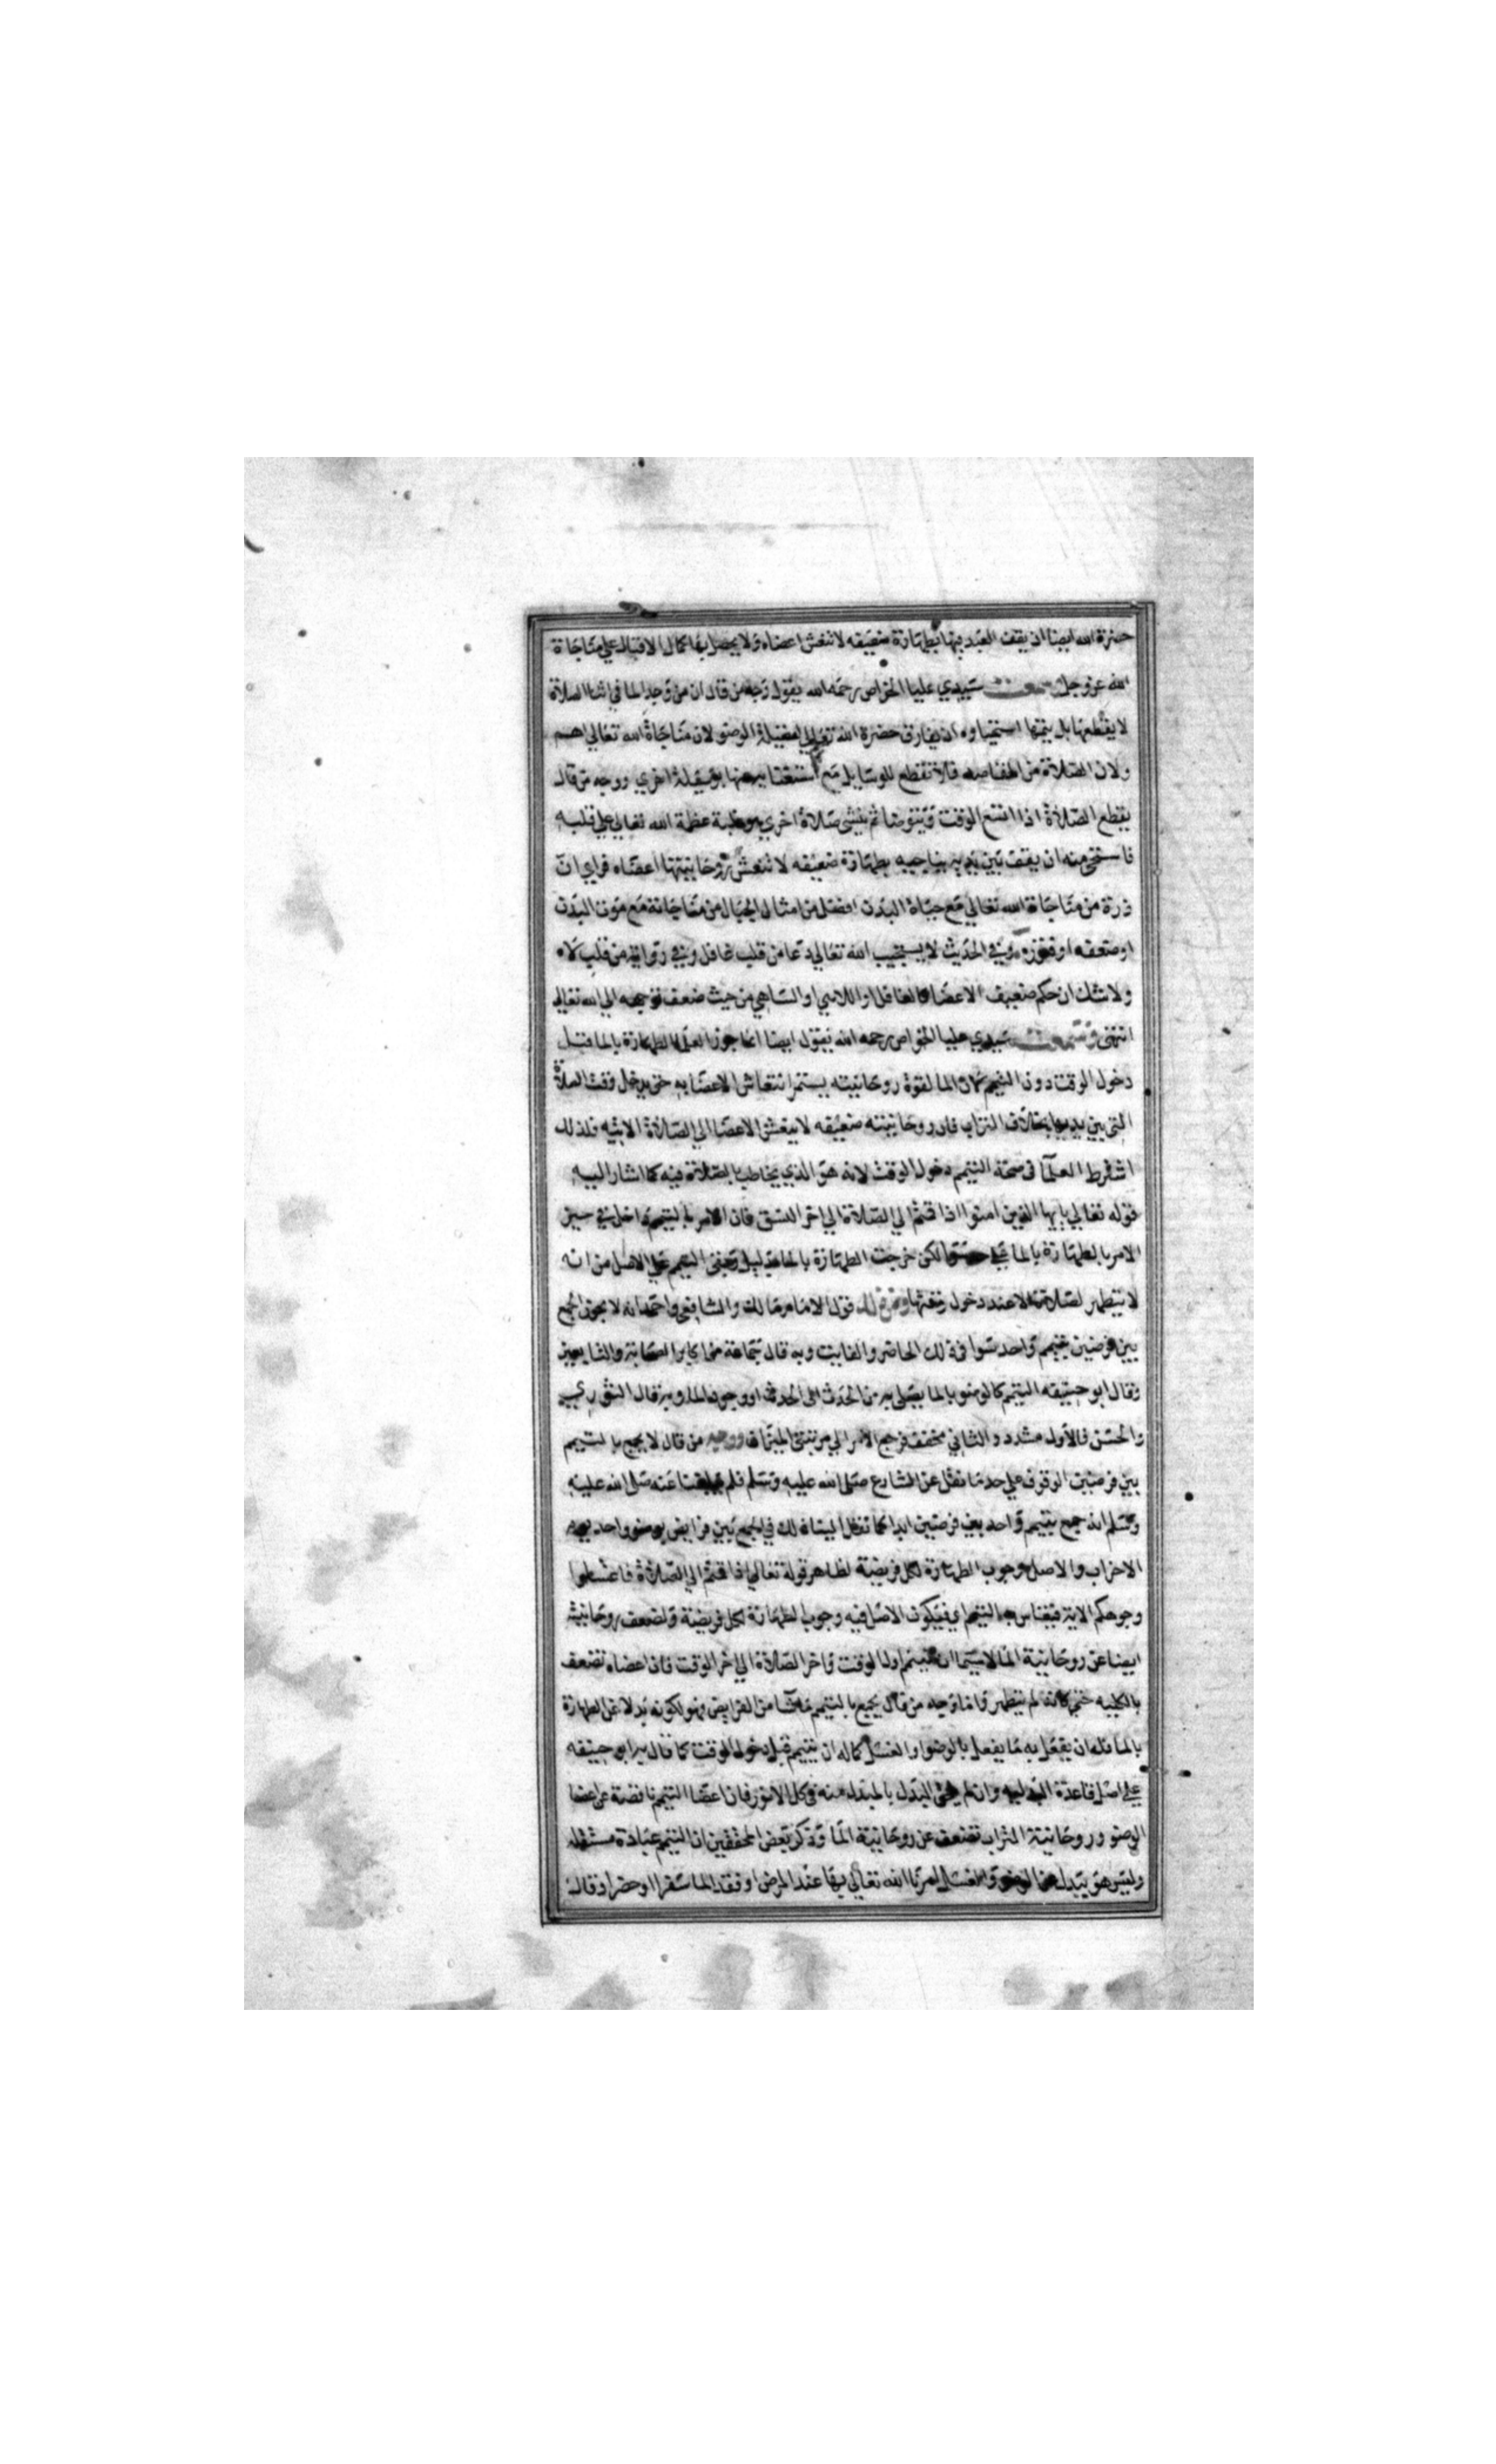 حضرة الله ايضا ان يقف العبد فيها بطهارة ضعيفه لا تنعش اعضاه ولا يحصل بها كمال الاقبال علي مناجاة
الله عز وجل وسمعت سيدي عليا الخواص رحمه الله يقول وجه من قال ان من وجد الما في اثنا الصلاة
لا يقطعها بل يتمها استحياوه ان يفارق حضرة الله تعالي لفضيلة الوضو لان مناجاة الله تعالي اهم
ولان الصلاة من المقاصد فلا تقطع للوسايل مع استغنايه عنها بوسيلة اخري ووجه من قال
يقطع الصلاة اذا اتسع الوقت ويتوضا ثم ينشي صلاة اخري هو غلبة عظمة الله تعالي علي قلبه
فاستحي منه ان يقف بين يديه يناجيه بطهارة ضعيفه لا تنعش روحانيتها اعضاه فراي ان
ذرة من مناجاة الله تعالي مع حياة البدن افضل من امثال الجبال من مناجاته مع موت البدن
او ضعفه او فتوره وفي الحديث لا يستجيب الله تعالي دعا من قلب غافل وفي رواية من قلب لاه
ولا شك ان حكم ضعيف الاعضا كالغافل او اللاهي او الساهي من حيث ضعف توجهه الي الله تعالي
انتهي وسمعت سيدي عليا الخواص رحمه الله يقول ايضا انما جوز العلما الطهارة بالما قبل
دخول الوقت دون التيمم لان الما لقوة روحانيته يستمر انتعاش الاعضا به حتي يدخل وقت الصلاة
التي بين يديها بخلاف التراب فان روحانيته ضعيفه لا ينعش الاعضا الي الصلاة الاتيه فلذلك
اشترط العلما في صحة التيمم دخول الوقت لانه هو الذي يخاطب بالصلاة فيه كما اشار اليه
قوله تعالي يا يها الذين امنوا اذا قمتم الي الصلاة الي اخر النسق فان الامر بالتيمم داخل في حيز
الامر بالطهارة بالما علي لكن خرجت الطهارة بالما بدليل وبقي التيمم علي الاصل من انه
لا يتطهر لصلاة الا عند دخول وقتها ومن ذلك قول الامام مالك والشافعي واحمد انه لا يجوز الجمع
بين فرضين بتيمم واحد سوا في ذلك الحاضر والفايت وبه قال جماعة من اكابر الصحابة والتابعين
وقال ابو حنيفه التيمم كالوضو بالما يصلي به من الحدث الي الحدث او وجود الما وبه قال الثوري
والحسن فالأول مشدد والثاني مخفف فرجع الامر الي مرتبتي الميزان ووجه من قال لا يجمع بالتيمم
بين فرضين الوقوف علي حد ما نقل عن الشارع صلي الله عليه وسلم فلم يبلغنا عنه صلي الله عليه
وسلم انه جمع بتيمم واحد بين فرضين ابدا كما نقل الينا ذلك في الجمع بين فرايض بوضو واحد يوم
الاحزاب والاصل وجوب الطهارة لكل فريضة لظاهر قوله تعالي اذا قمتم الي الصلاة فاغسلوا
وجوهكم الاية فيقاس به التيمم اي فيكون الاصل فيه وجوب الطهارة لكل فريضة ولضعف روحانيته
ايضا عن روحانية الما لاسيما ان تيمم اول الوقت واخر الصلاة الي اخر الوقت فان اعضاه تضعف
بالكليه حتي كانه لم يتطهر واما وجه من قال يجمع بالتيمم ما شا من الفرايض فهو لكونه بدلا عن الطهارة
بالما فله ان يفعل به ما يفعل بالوضوا والغسل كما له ان يتيمم قبل دخول الوقت كما قال به ابو حنيفه
علي اصل قاعدة البدليه وان لم يلحق البدل بالمبدل منه في كل الامور فان اعضا التيمم ناقصة عن اعضا
الوضو وروحانية التراب تضعف عن روحانية الما وذكر بعض المحققين ان التيمم عبادة مستقله
وليس هو ببدل عن الوضو والغسل امرنا الله تعالي بها عند المرض او فقد الما سفرا او حضرا وقال